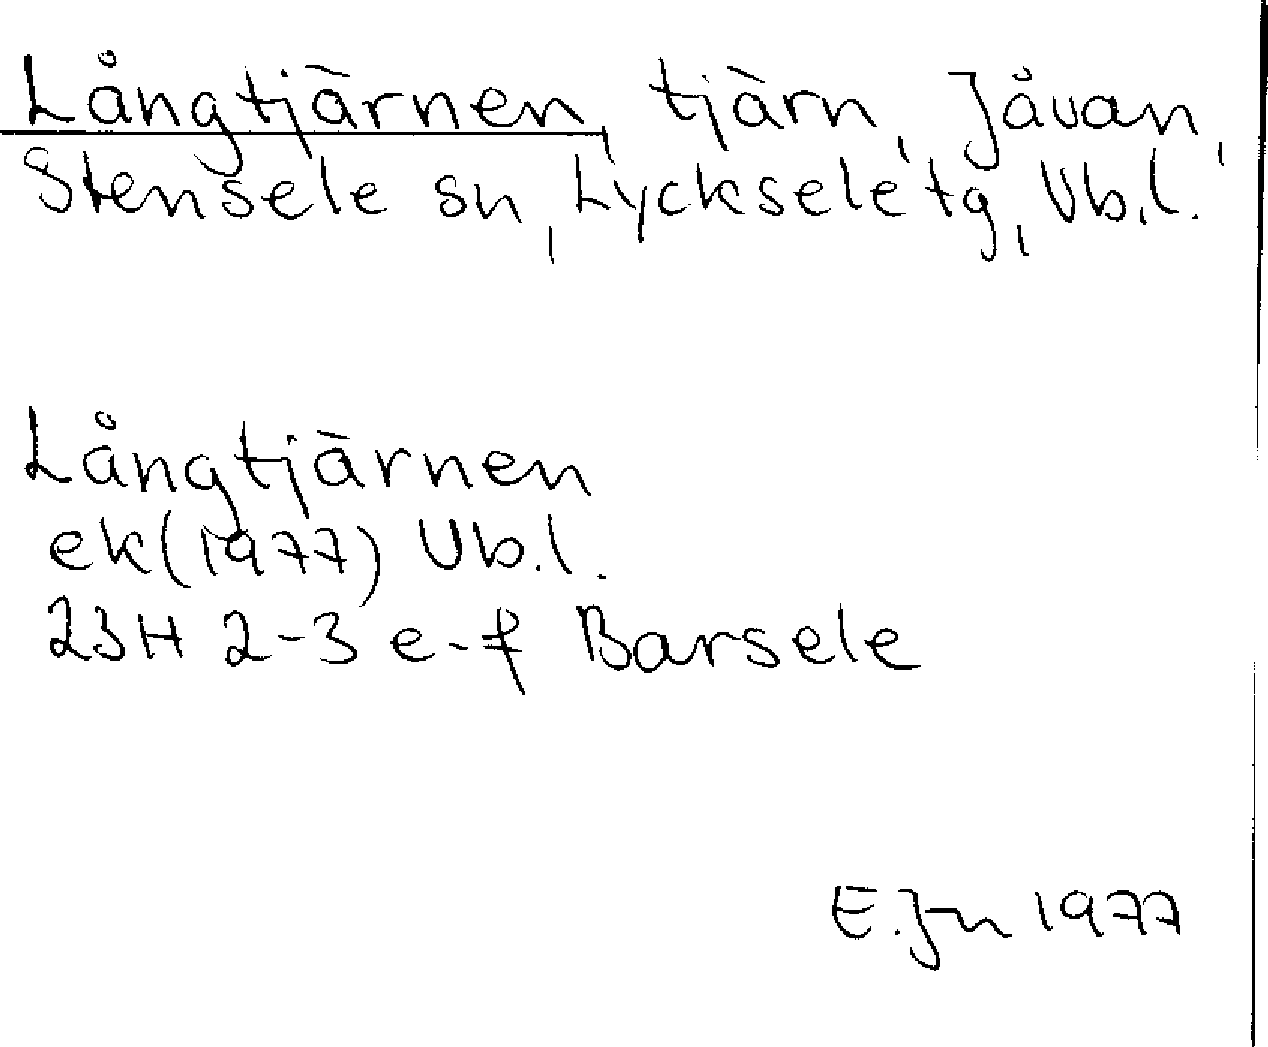 Långtjärnen, tjärn, Jåvan,
Stensele sn, Lycksele tg, Vb.l.
Långtjärnen
ek(1977) Vb.l.
23H 2-3 e-f Barsele
E.Jn 1977